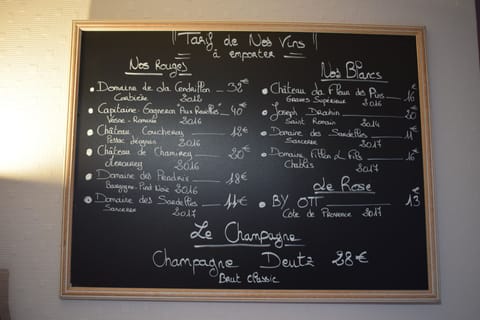 "Tarif de Nos Vins"
à emporter
Nos Rouges
Domaine de la Cendrillon 32€
Corbière 2012
Capitaine-Gagneron "Aux Raviolles" 40€
Vosne-Romanée 2016
Château Coucheroy 12€
Pessac Léognan 2016
Château de Chamirey 20€
Mercurey 2016
Domaine des 18€
Bourgogne Pinot Noir 2016
Domaine des Sardelles 11€
Sancerre 2017
Nos Blancs
Château da Fleur des Pins 16€
Graves Supérieur 2016
Joseph Drouhin 20€
Saint Romain 2014
Domaine des Sardelles 11€
Sancerre 2017
Domaine Fillon & Fils 16€
Chablis 2017
Le Rosé
BY OTT 13€
Côte de Provence 2017
Le Champagne
Champagne Deutz 28€
Brut Classic